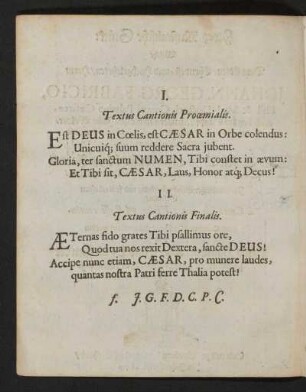 I.
Textus Cantionis Proœmialis.
Est DEUS in Cœlis, est CÆSAR in Orbe colendus:
Unicuiq; suum reddere Sacra jubent.
Gloria, ter sanctum NUMEN, Tibi constet in ævum:
Et Tibi sit, CÆSAR, Laus, Honor atq; Decus!
II.
Textus Cantionis Finalis.
ÆTernas fido grates Tibi psallimus ore,
Quod tua nos rexit Dextera, sancte DEUS!
Accipe nunc etiam, CÆSAR, pro munere laudes,
quantas nostra Patri ferre Thalia potest!
f. J. G. F. D. C. P. C.